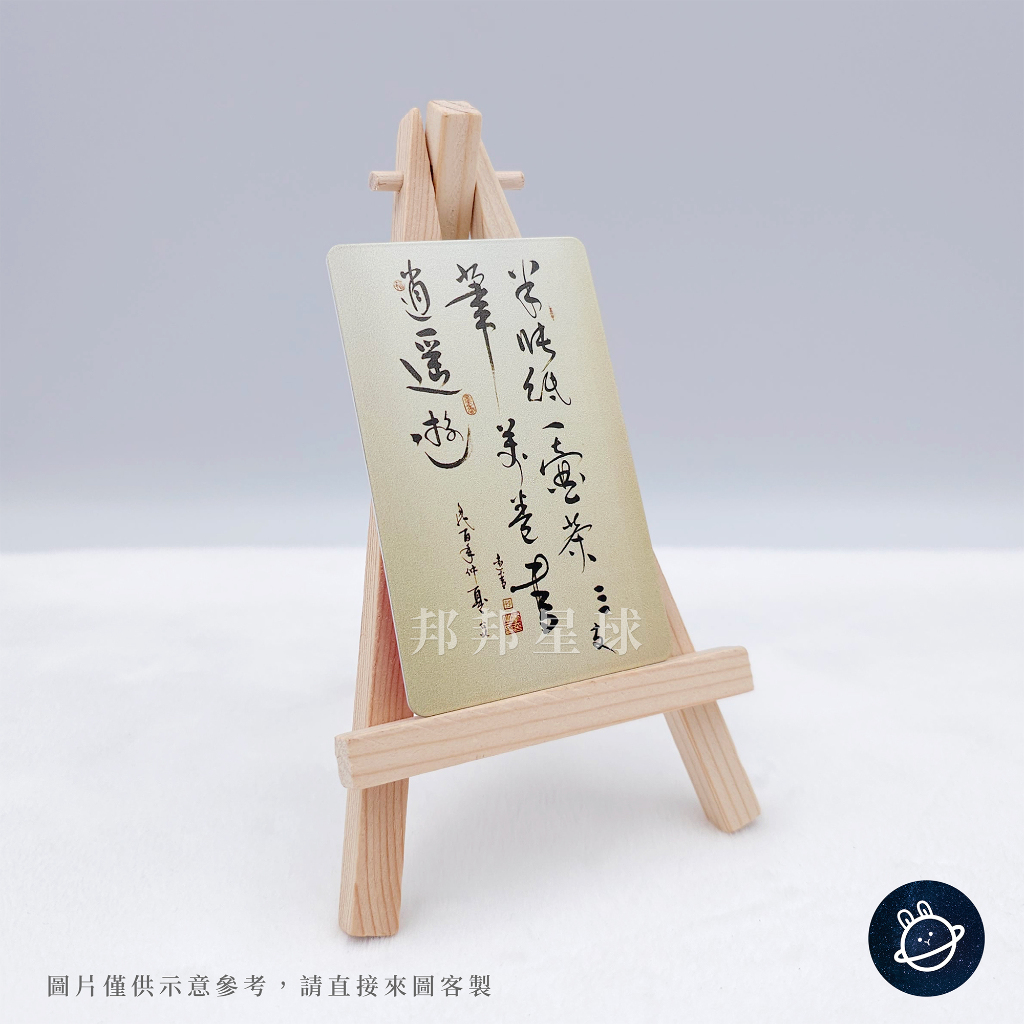 半張紙一壺茶三支
筆萬卷書
逍遙遊
民百年仲夏
邦邦星球
圖片僅供示意參考，請直接來圖客製